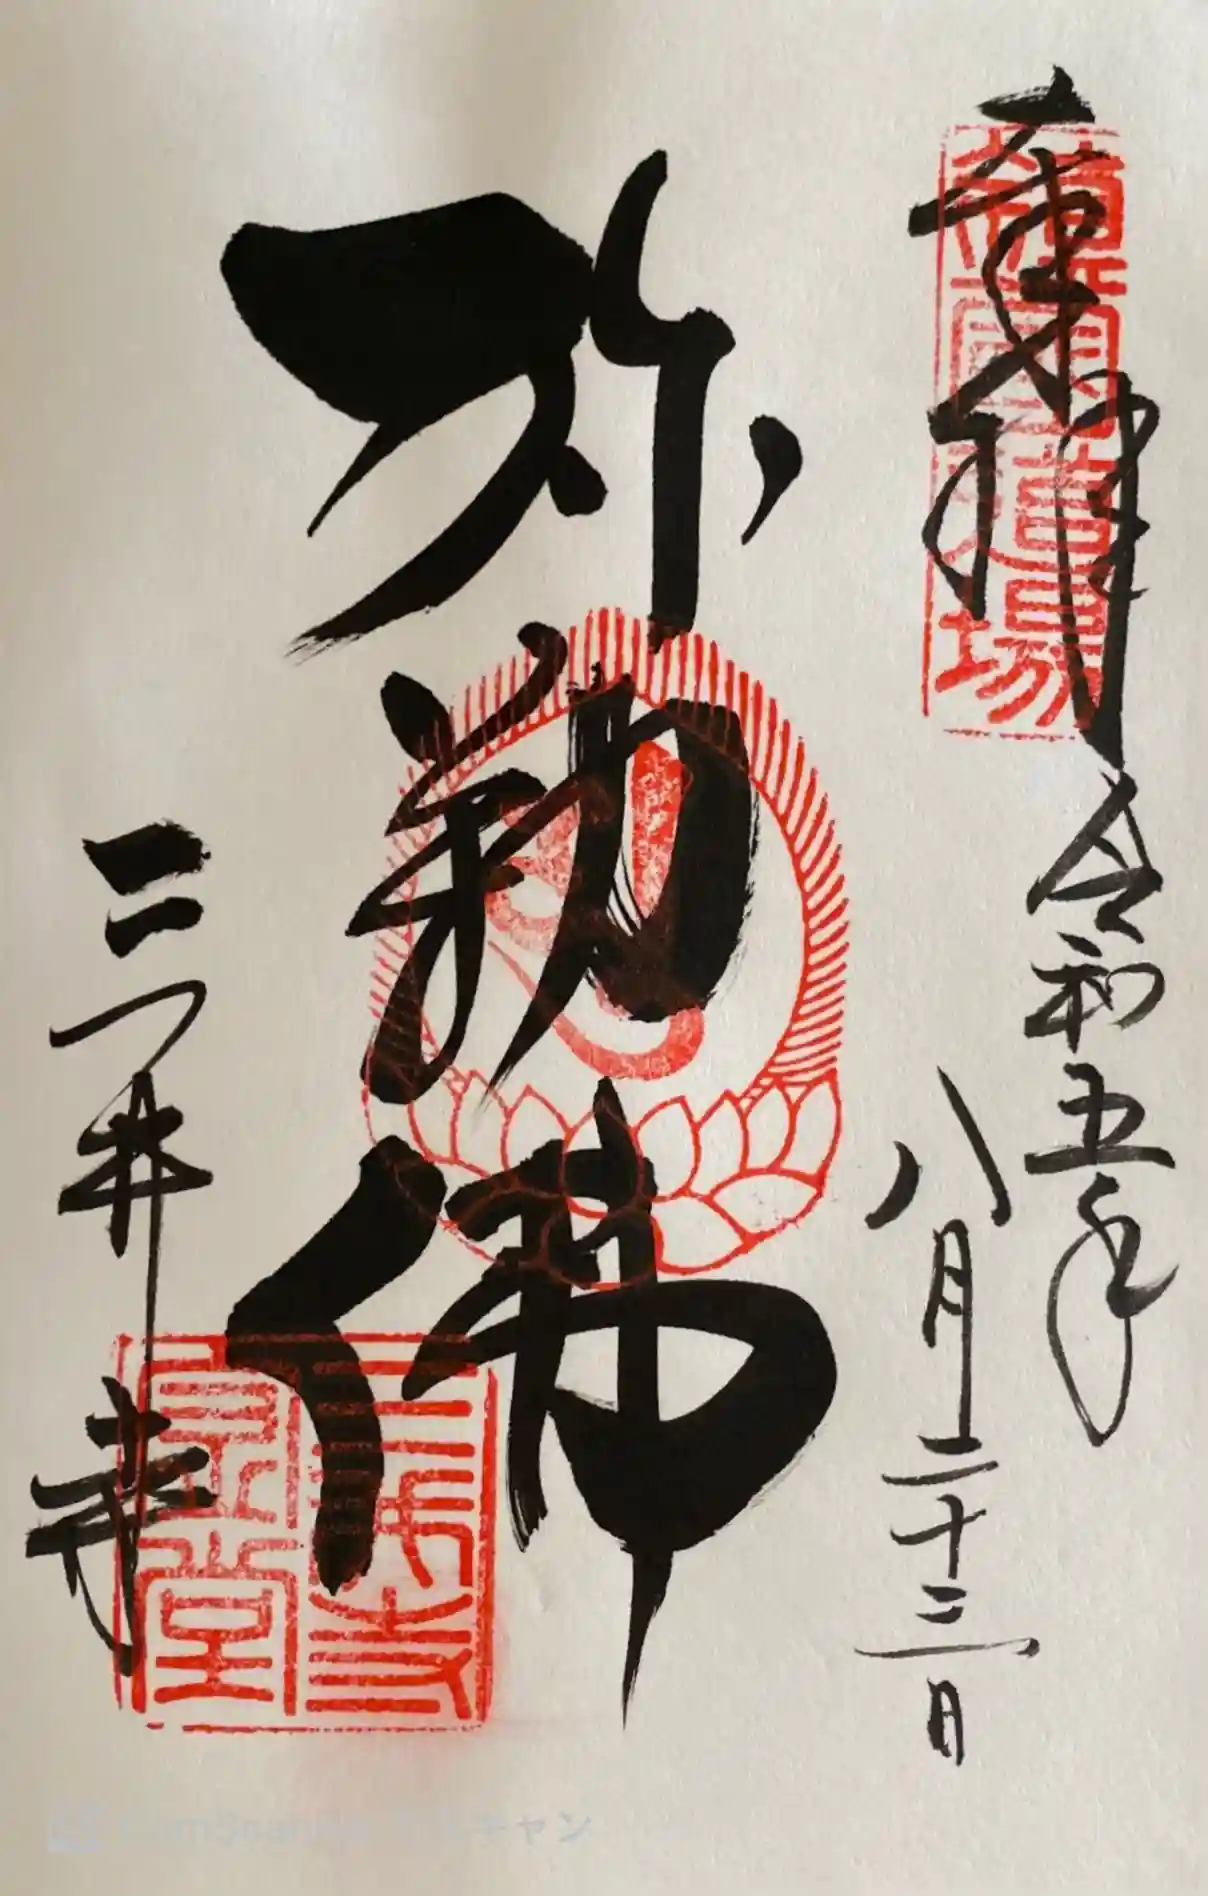 奉拝
令和五年
八月二十三日
弥勒佛
三井寺